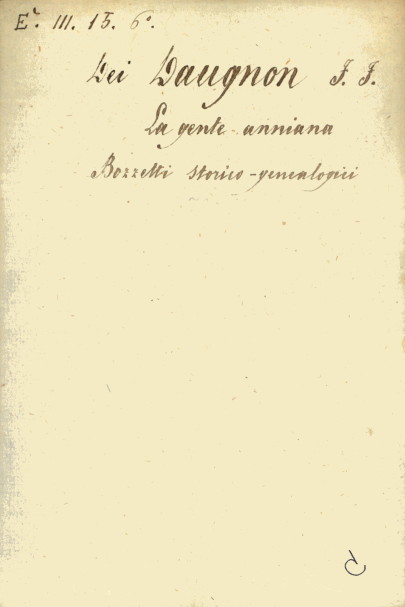 E². III. 15. 6°.
Dei Daugnon F. F.
La gente anniana
Bozzetti storico-genealogici